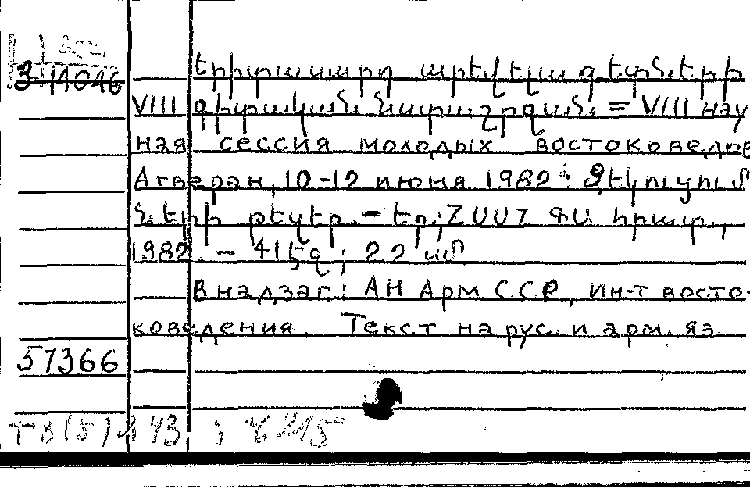 Երիտասարդ արևելագետների
VIII գիտական նստաշրջան. = VIII науч
ная сессия молодых востоковедов
Агверан, 10-12 июня 1982: Զեկուցում
ների թեզեր. – Եր.; ՀՍՍՀ ԳԱ հրատ.,
1982. – 41 էջ; 22 սմ
В надзаг.: АН Арм ССР, Ин-т восто-
коведения. Текст на рус. и арм. яз.
57366